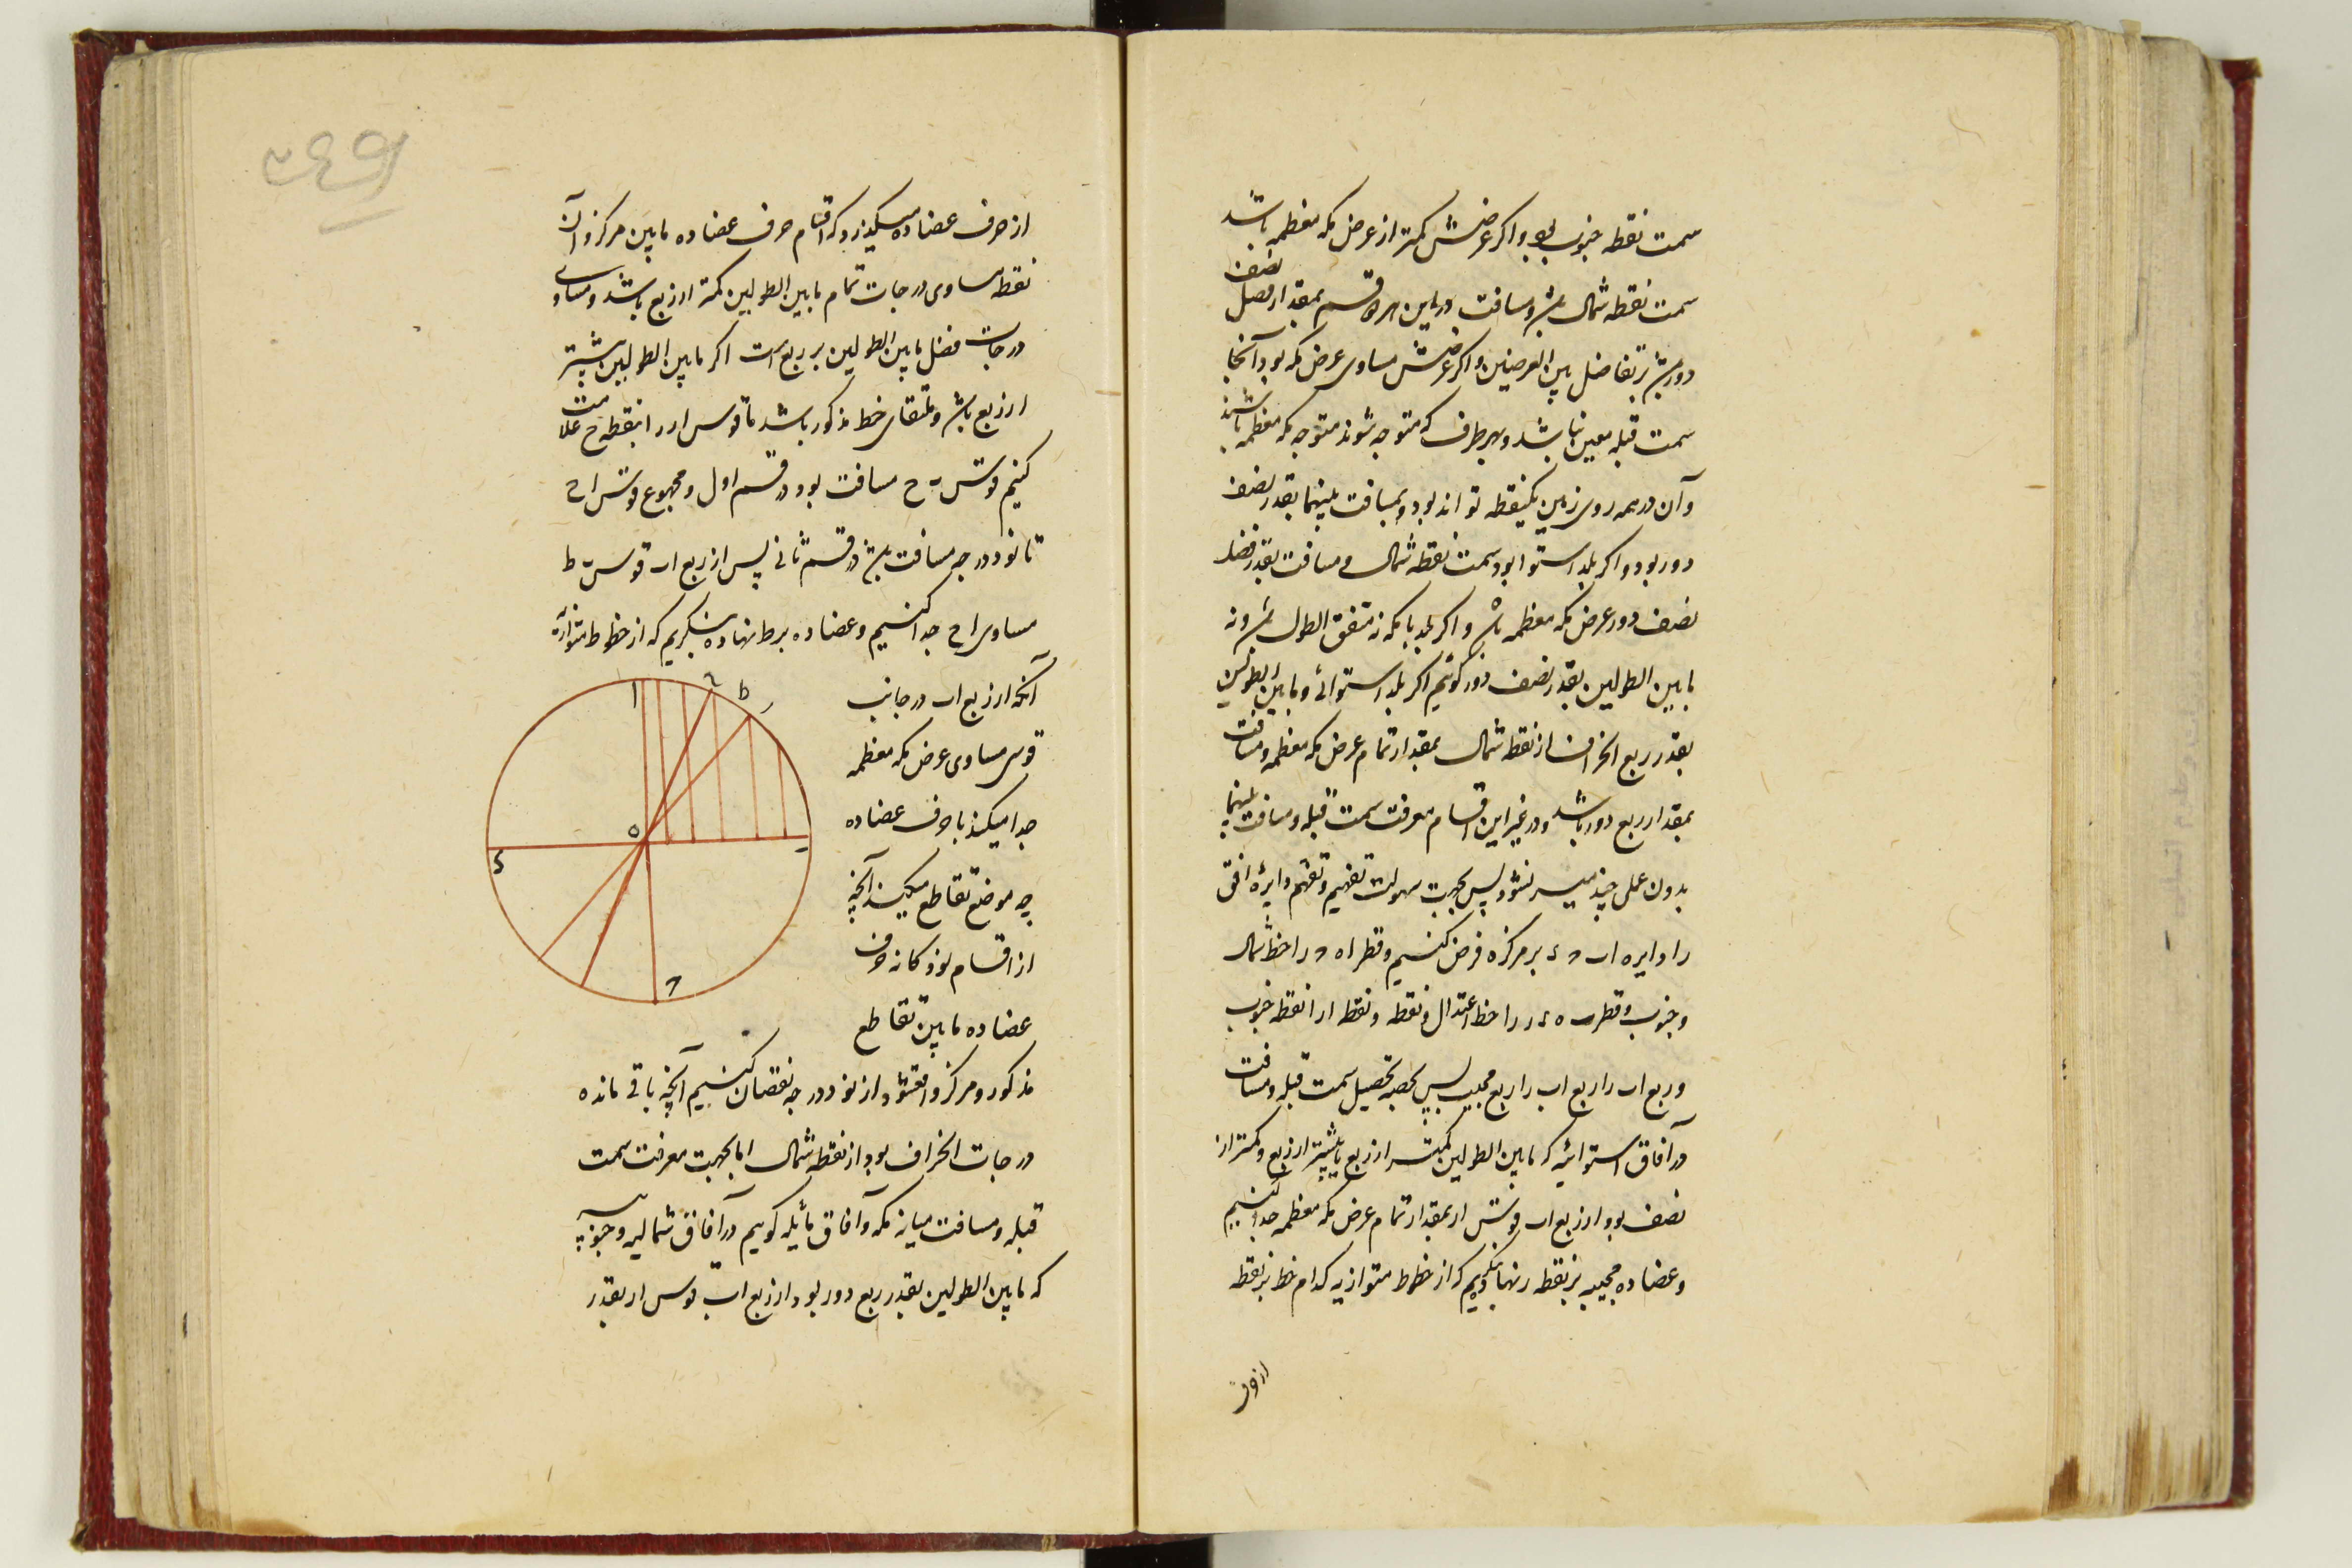 سمت نقطه جنوب بود و اکر عرضش کمتر از عرض مکه معظمه باشد
سمت نقطه شمال باشد و مسافت در این هر دو قسم بمقدار فضل نصف
دور باشد بر تفاضل بین العرضین و اکر عرضش مساوی عرض مکه بود آنجا
سمت قبله معین نباشد و بهر طرف که متوجه شوند متوجه مکه معظمه باشند
و آن در همه روی زمین یکنقطه تواند بود و مسافت بینهما بقدر نصف
دور بود و اکر بلد استوا بود سمت نقطه شمال و مسافت بقدر فضل
نصف دور عرض مکه معظمه باشد و اکر بلد با مکه نه متفق الطول باشد و نه
ما بین الطولین بقدر نصف دور کوئیم اکر بلد استوائی و ما بین الطولین
بقدر ربع انحراف از نقطه شمال بمقدار تمام عرض مکه معظمه و مسافت
بمقدار ربع دور باشد و در غیر این اقسام معرفت سمت قبله و مسافت بینهما
بدون عملی چند میسر نشود پس بجهت سهولت تفهیم و تفهم دایره افق
را دایره ا ب ح د بر مرکز ه فرض کنیم و قطر ا ه ح را خط شمال
و جنوب و قطر ب ه د را خط اعتدال و نقطه و نقطه ا را نقطه جنوب
و ربع ا ب را ربع ا ب را ربع مجیب پس بجهة تحصیل سمت قبله و مسافت
در آفاق استوائیه که ما بین الطولین کمتر از ربع یا بیشتر از ربع و کمتر از
نصف بود از ربع ا ب قوس ا ر بمقدار تمام عرض مکه معظمه جدا کنیم
و عضاده مجیبه بر نقطه ر نهاده بنکریم که از خطوط متوازیه کدام خط بر نقطه
از حرف
از حرف عضاده میکذرد که اقسام حرف عضاده ما بین مرکز و آن
نقطه مساوی درجات تمام ما بین الطولین کمتر از ربع باشد و مساوی
درجات فضل ما بین الطولین بر ربع است اکر ما بین الطولین بیشتر
از ربع باشد و ملتقای خط مذکور باشد با قوس ا ر را بنقطه ح علامت
کنیم قوس ب ح مسافت بود در قسم اول و مجموع قوس ا ح
تا نود درجه مسافت باشد در قسم ثانی پس از ربع ا ب قوس ب ط
مساوی ا ح جدا کنیم و عضاده بر ط نهاده بنکریم که از خطوط متوازیه
آنکه از ربع ا ب در جانب
قوسی مساوی عرض مکه معظمه
جدا میکند با حرف عضاده
چه موضع تقاطع میکند آنچه
از اقسام نود کانه حرف
عضاده ما بین تقاطع
مذکور و مرکز واقع شود از نود درجه نقصان کنیم آنچه باقی مانده
درجات انحراف بود از نقطه شمال اما بجهت معرفت سمت
قبله و مسافت میانه مکه و آفاق مائله کوییم در آفاق شمالیه و جنوبیه
که ما بین الطولین بقدر ربع دور بود از ربع ا ب قوس ا ر بقدر
ا
ح
ط
ر
ه
ب
د
ح